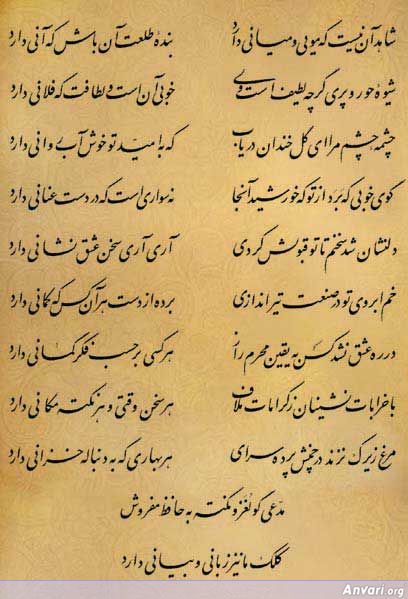 شاهد آن نیست که مویی و میانی دارد بندهٔ طلعت آن باش که آنی دارد
شیوهٔ حور و پری گرچه لطیف است ولی خوبی آن است و لطافت که فلانی دارد
چشمهٔ چشم مرا ای گل خندان دریاب که به امید تو خوش آب روانی دارد
گوی خوبی که برد از تو که خورشید آنجا نه سواری است که در دست عنانی دارد
دلنشان شد سخنم تا تو قبولش کردی آری آری سخن عشق نشانی دارد
خم ابروی تو در صنعت تیراندازی برده از دست هر آن کس که کمانی دارد
در ره عشق نشد کس به یقین محرم راز هر کسی بر حسب فکر گمانی دارد
با خرابات نشینان ز کرامات ملاف هر سخن وقتی و هر نکته مکانی دارد
مرغ زیرک نزند در چمنش پرده سرای هر بهاری که به دنباله خزانی دارد
مدعی گو لغز و نکته به حافظ مفروش
کلک ما نیز زبانی و بیانی دارد
Anvari.org